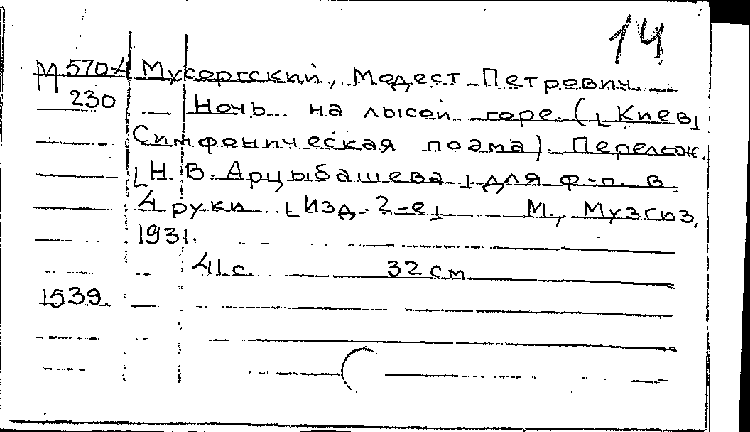 14
М 570-4 Мусоргский, Модест Петрович.
230 Ночь на лысой горе. (⌊Киев⌋
Симфоническая поэма). Перелож.
⌊Н. В. Арцыбашева⌋ для ф-п. в
4 руки. ⌊Изд. 2-е⌋ М., Музгиз,
1931.
41 с. 32 см
1539.